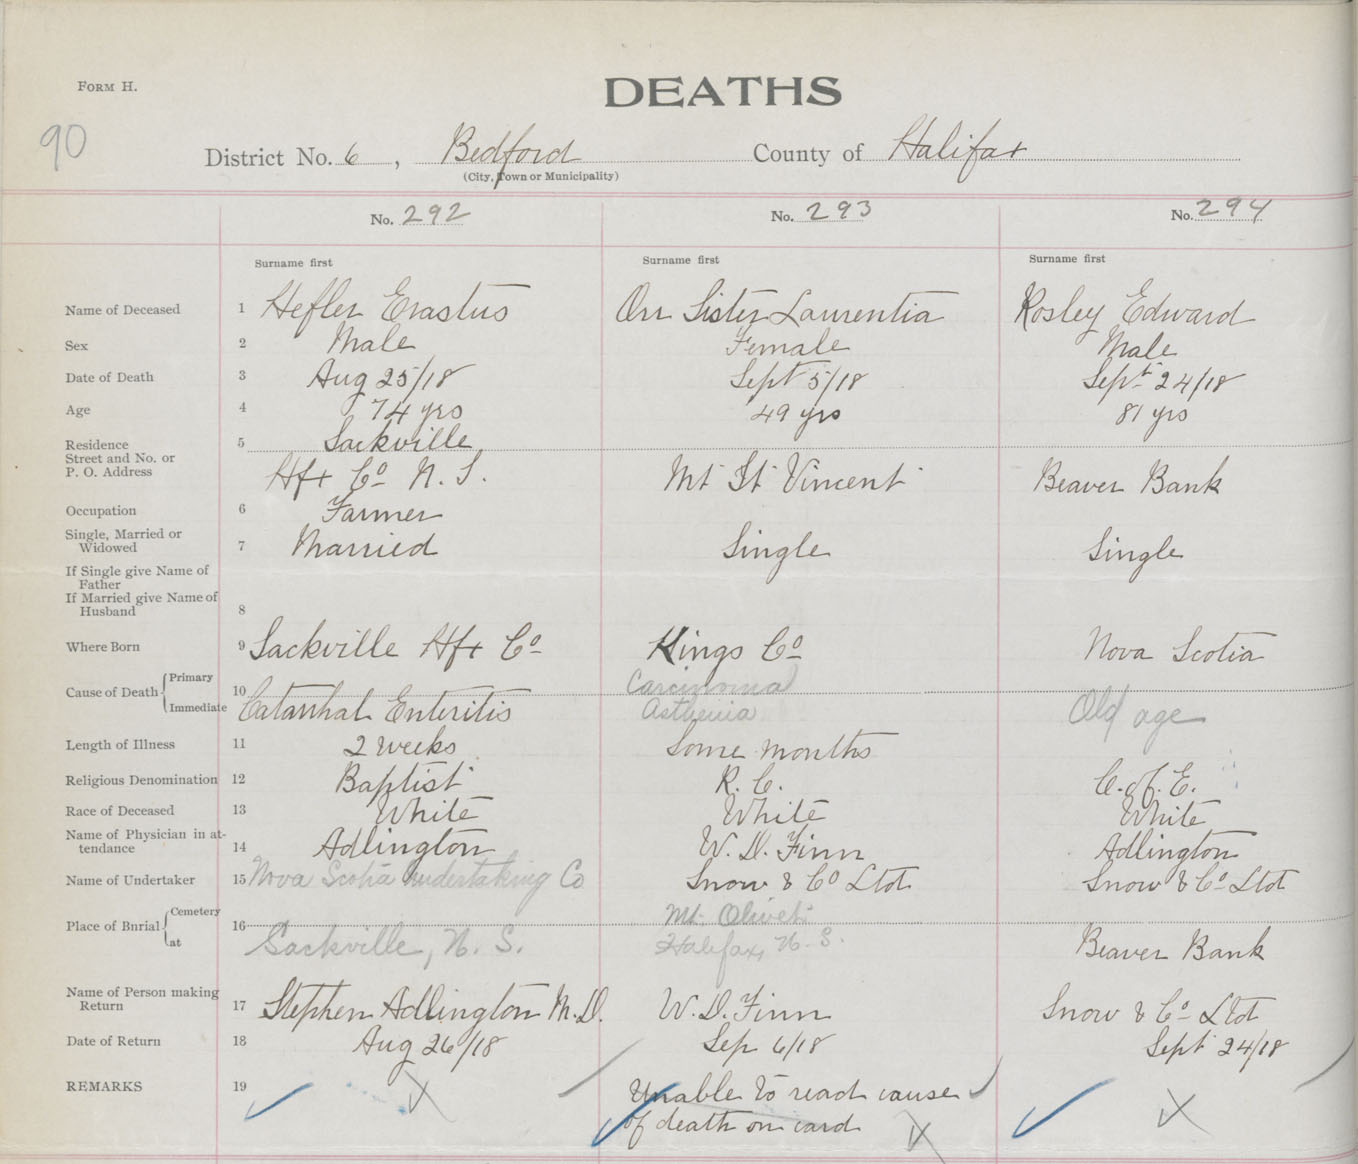 FORM H.
DEATHS
90
District No. 6, Bedford County of Halifax
(City, Town or Municipality)
No. 292 No. 293 No. 294
Surname first Surname first Surname first
Name of Deceased 1 Hefler Erastus Orr Sister Laurentia Rosley Edward
Sex 2 Male Female Male
Date of Death 3 Aug 25/18 Sept 5/18 Sept 24/18
Age 4 74 yrs 49 yrs 81 yrs
Residence 5 Sackville
Street and No. or
P. O. Address Hfx Co N. S. Mt St Vincent Beaver Bank
Occupation 6 Farmer
Single, Married or
Widowed 7 Married Single Single
If Single give Name of
Father
If Married give Name of
Husband 8
Where Born 9 Sackville Hfx Co Kings Co Nova Scotia
Cause of Death { Primary 10 Carcinoma
Immediate Catarrhal Enteritis Asthenia Old age
Length of Illness 11 2 weeks Some months
Religious Denomination 12 Baptist R. C. C. of E.
Race of Deceased 13 White White White
Name of Physician in at-
tendance 14 Adlington W. D. Finn Adlington
Name of Undertaker 15 Nova Scotia Undertaking Co Snow & Co Ltd Snow & Co Ltd
Place of Burial { Cemetery 16 Mt. Olivet
at Sackville, N. S. Halifax, N. S. Beaver Bank
Name of Person making
Return 17 Stephen Adlington M.D. W. D. Finn Snow & Co Ltd
Date of Return 18 Aug 26/18 Sep 6/18 Sept 24/18
REMARKS 19 Unable to read cause
of death on card